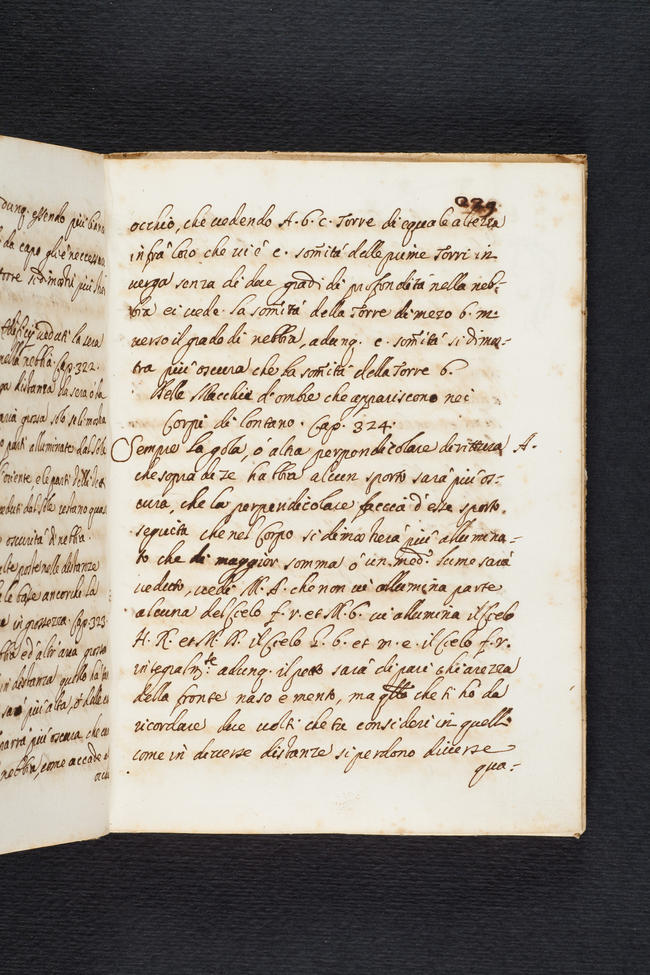 dunq. essendo più bian
da capo gli è necessar
torre si dimostri più
edificij veduti la sera
nella nebbia. Cap. 322.
distanza la sera o la
aria grossa solo se li mostra
parti alluminate dal Sole
oriente e le parti delli
veduti dal Sole restano quasi
oscurità di nebbia.
alte poste nelle distanze
le base ancorche la
in grossezza. Cap. 323.
bia ed altr'aria grossa
in distanza quello ha
sarà più alta, et delle
narrà più oscura, che
nebbia, come accade
223.
occhio, che vedendo A. b. c. Torre di equale altezza
infrà loro che vi è c. som̃ità delle prime Torri in
verga senza di due gradi di profondità nella neb-
bia ei vede la som̃ità della Torre di mezo b. in-
verso il grado di nebbia, adunq. c. som̃ità si dimos-
tra più oscura che la som̃ità della Torre b.
Delle Macchie d'ombre che appariscono nei
Corpi di lontano. Cap. 324.
Sempre la gola, ò altra perpendicolare dirittura A.
che sopra di se habbia alcun sporto sarà più os-
cura, che la perpendicolare faccia d'esso sporto.
seguita che nel Corpo si dimostrerà più allumina-
to che di maggior somma ò un med.º lume sarà
veduto, vedi M. A. che non vi allumina parte
alcuna del Cielo f. r. et M. b. vi allumina il Cielo
H. K. et M. N. il Cielo L. b. et m. e. il Cielo f. r.
integralm.te adunq. il petto sarà di pari chiarezza
della fronte naso e mento, ma q̃llo che ti hò da
ricordare due volti che tu consideri in quelli
come in diverse distanze si perdono diverse
qua-